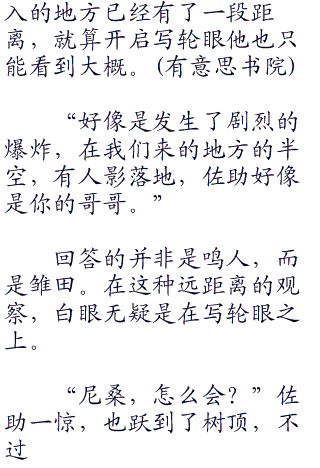 入的地方已经有了一段距
离，就算开启写轮眼他也只
能看到大概。(有意思书院)
“好像是发生了剧烈的
爆炸，在我们来的地方的半
空，有人影落地，佐助好像
是你的哥哥。”
回答的并非是鸣人，而
是雏田。在这种远距离的观
察，白眼无疑是在写轮眼之
上。
“尼桑，怎么会？”佐
助一惊，也跃到了树顶，不
过